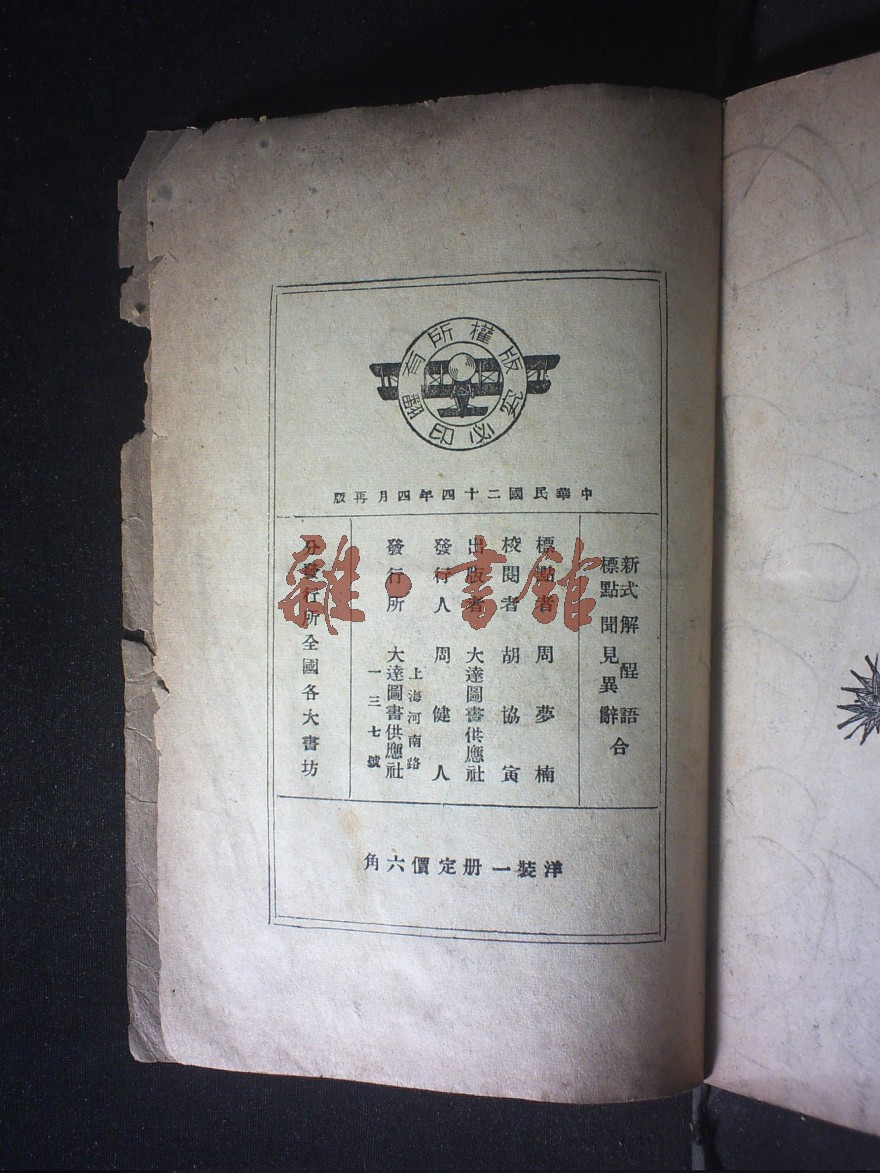 版權所有
翻印必究
中華民國二十四年四月再版
新式標點 解醒語 聞見異辭 合
標點者 周夢楠
校閱者 胡協寅
出版者 大達圖書供應社
發行人 周健人
發行所 大達圖書供應社
上海河南路
一三七號
分發行所全國各大書坊
洋裝一册定價六角
雜·書館